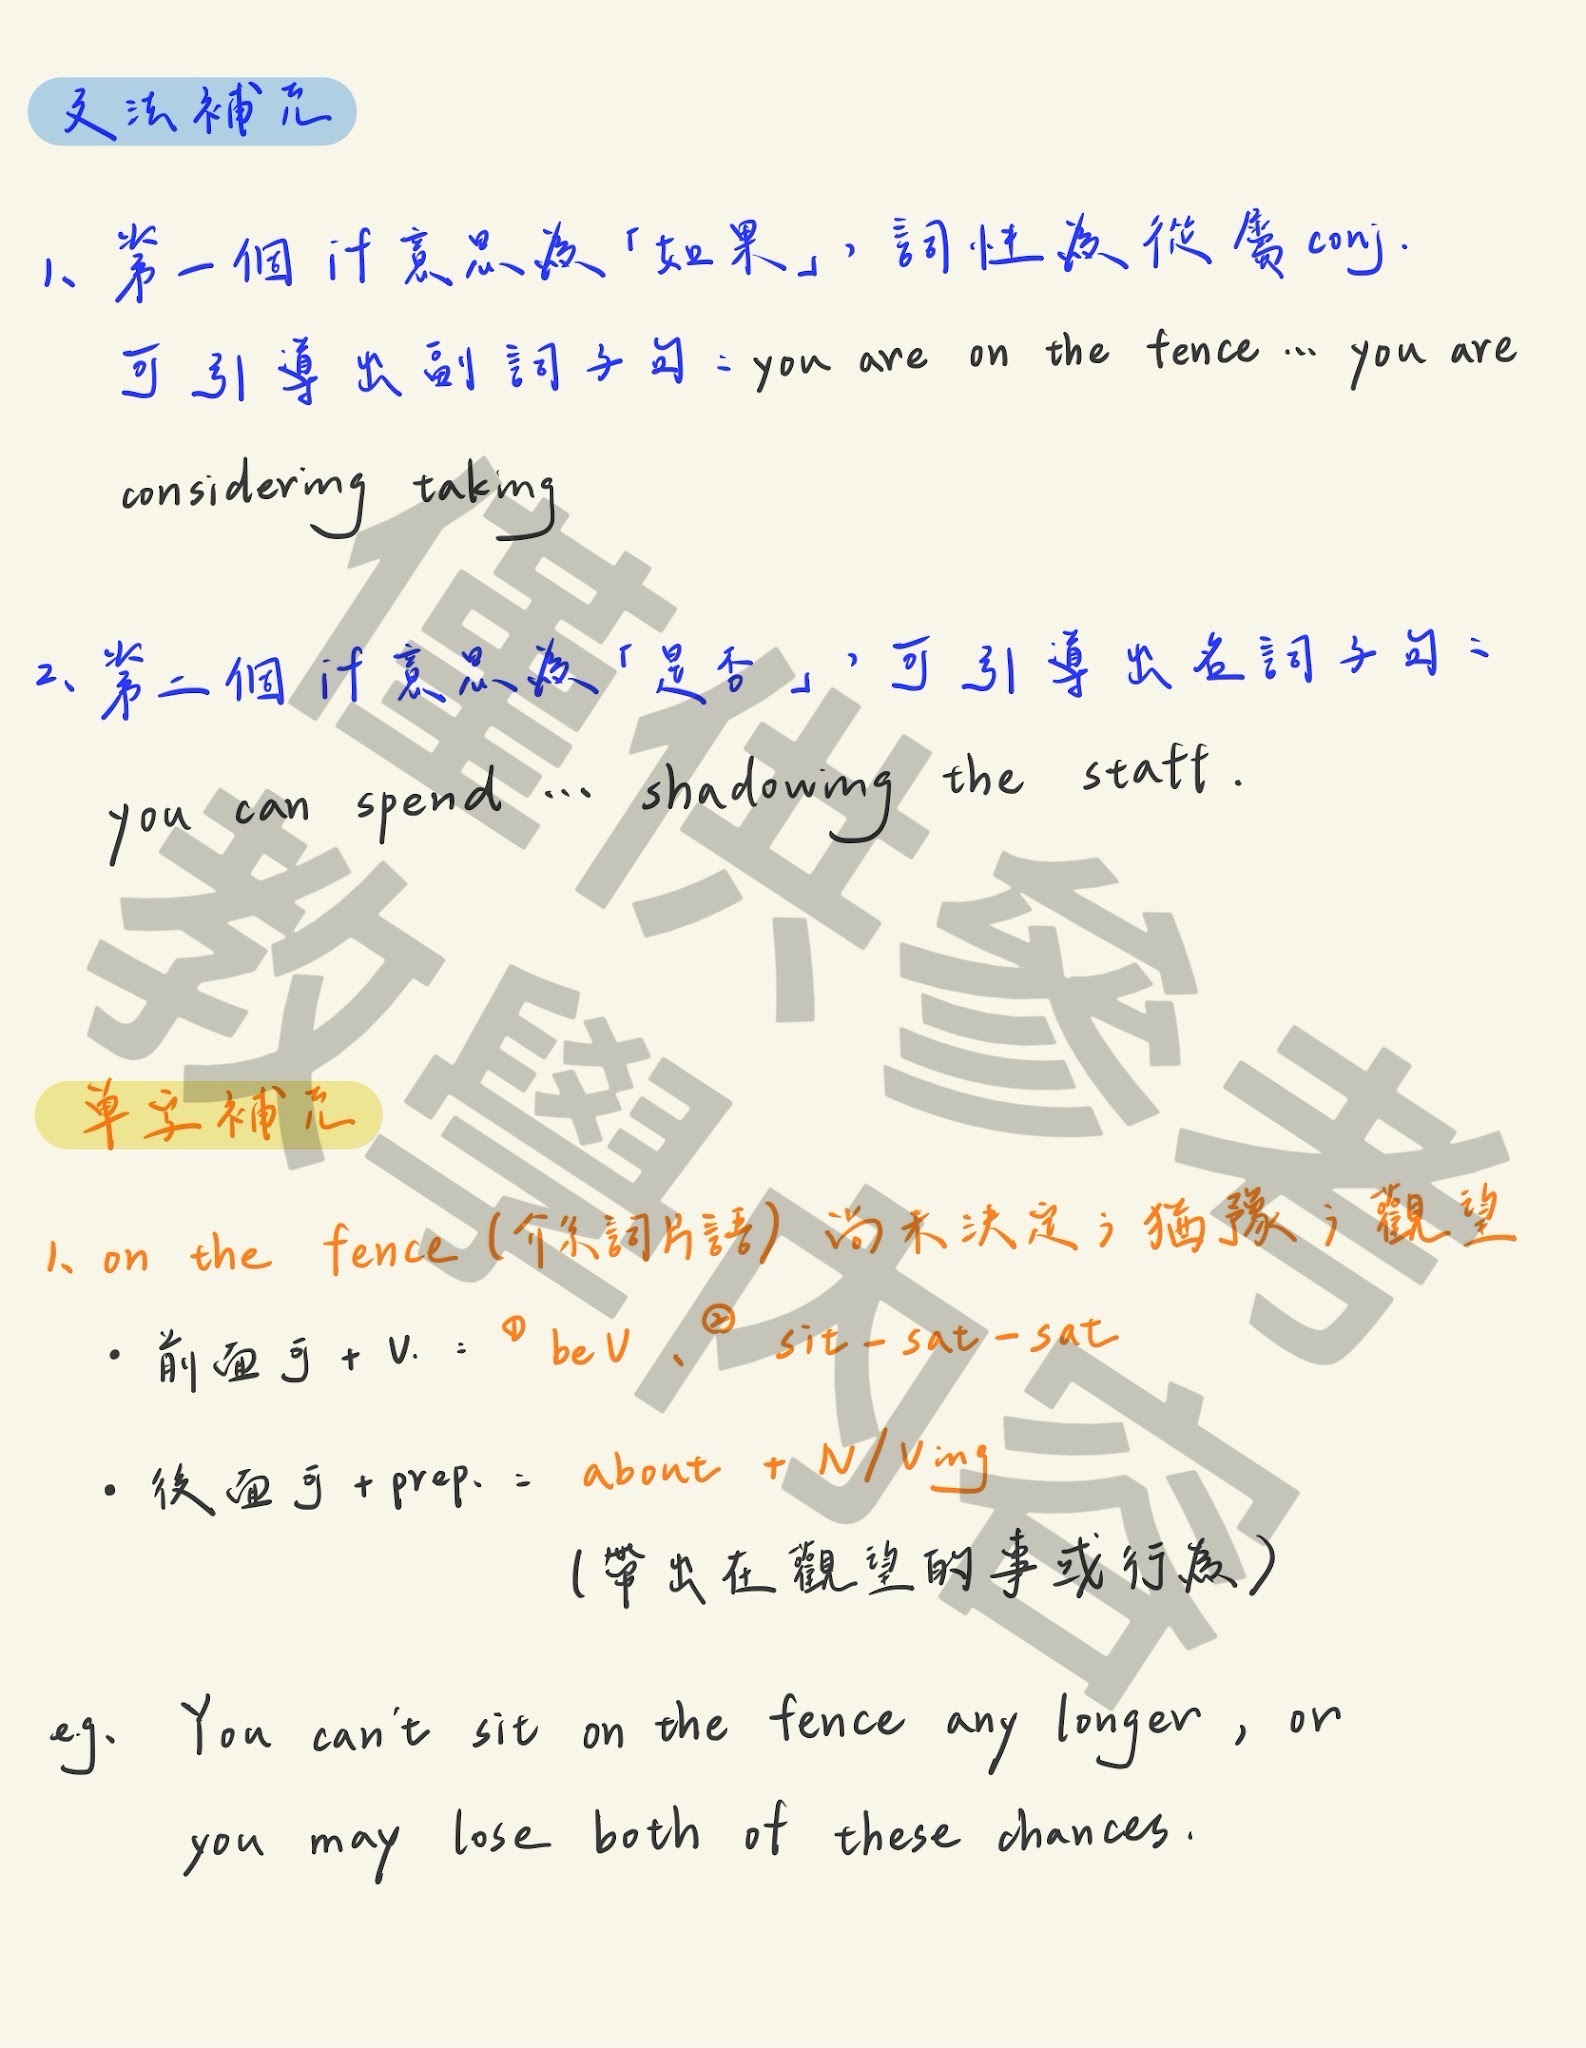 文法補充
1、第一個 if 意思為「如果」，詞性為從屬 conj.
可引導出副詞子句：you are on the fence … you are
considering taking
2、第二個 if 意思為「是否」，可引導出名詞子句：
you can spend … shadowing the staff.
單字補充
1、on the fence (介系詞片語) 尚未決定；猶豫；觀望
• 前面可 + V. : ① be V、② sit - sat - sat
• 後面可 + prep. : about + N/Ving
(帶出在觀望的事或行為)
eg. You can't sit on the fence any longer, or
you may lose both of these chances.
僅供參考
教學內容